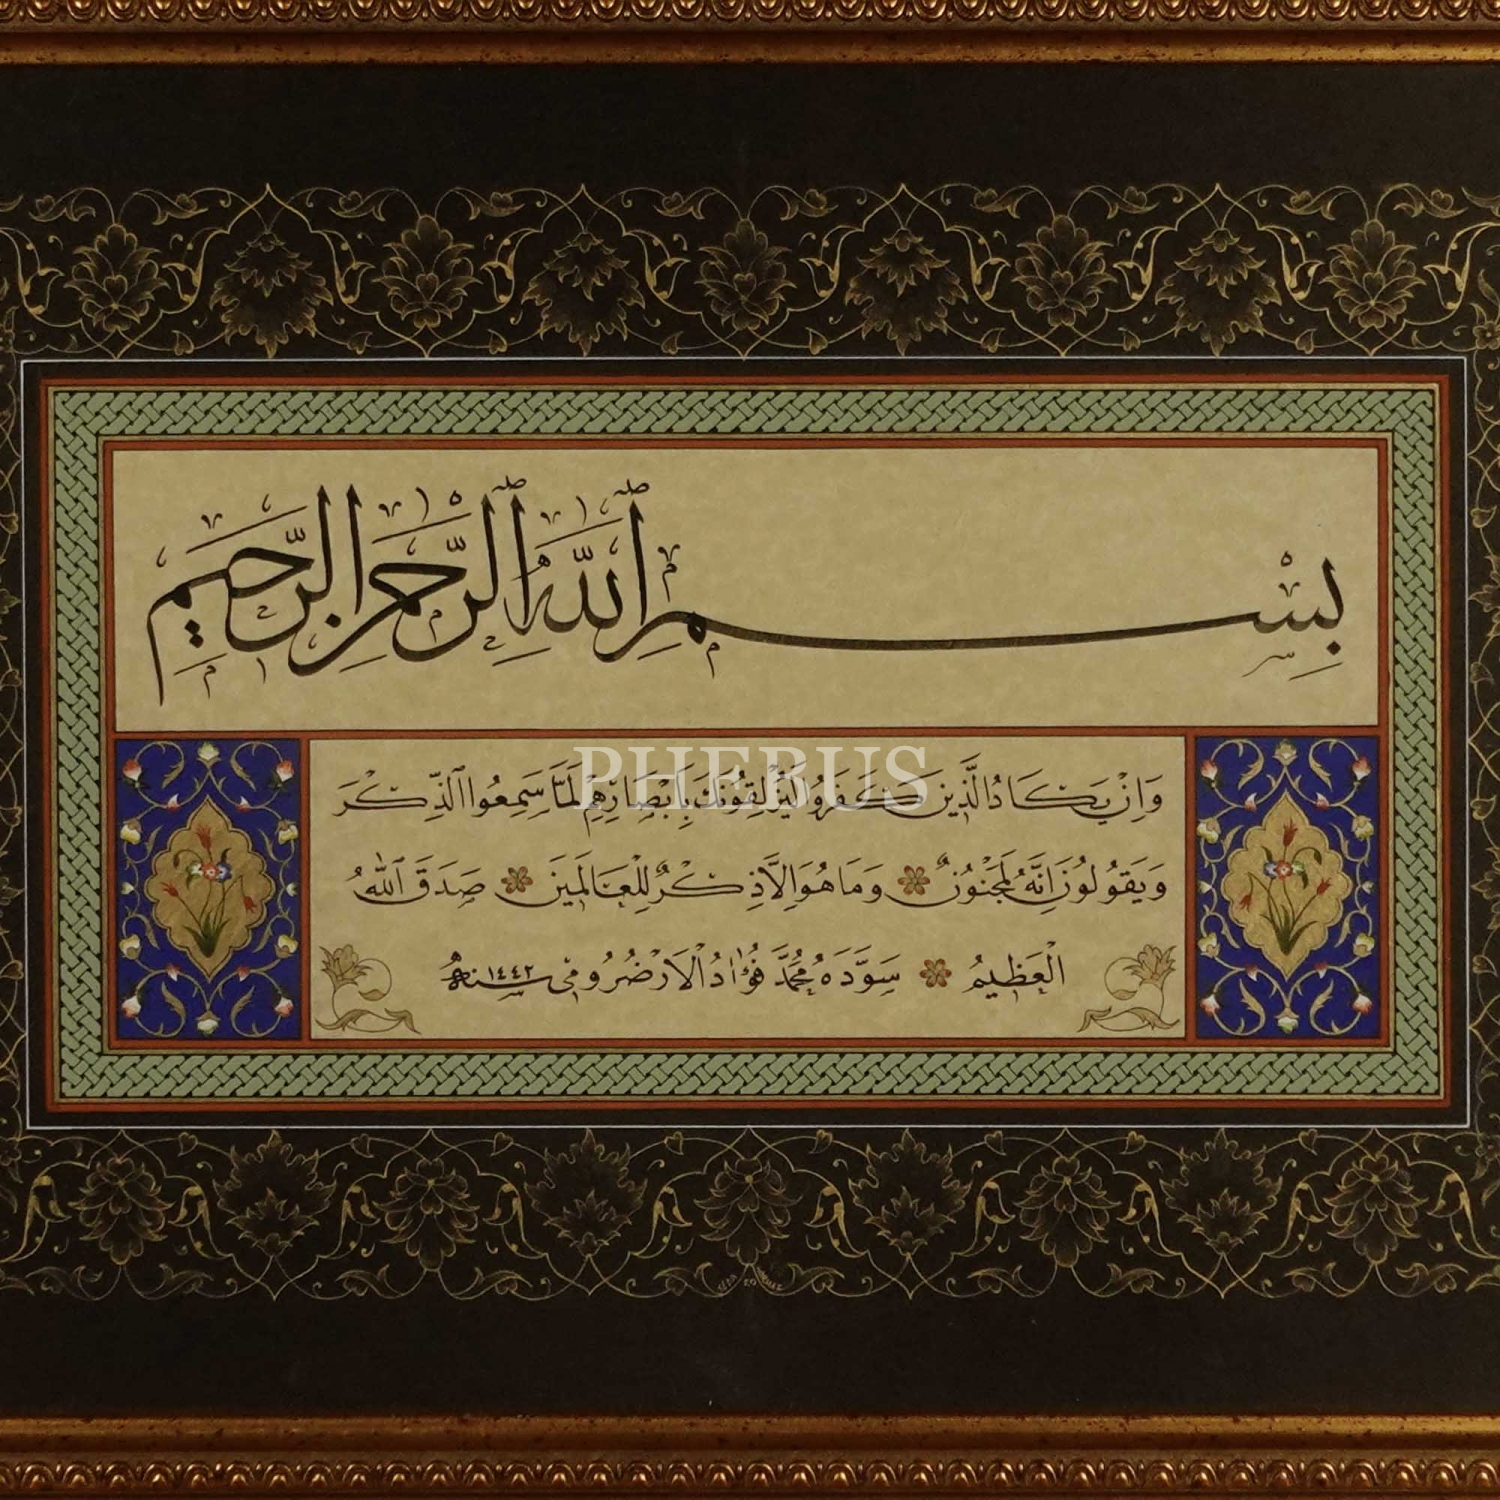 بِسْمِ ٱللّٰهِ ٱلرَّحْمٰنِ الرَّحِيمِ
PHEBUS
وَاِنْ يَكَادُ الَّذِينَ كَفَرُوا لَيُزْلِقُونَكَ بِاَبْصَارِهِمْ لَمَّا سَمِعُوا الذِّكْرَ
وَيَقُولُونَ اِنَّهُ لَمَجْنُونٌ وَمَا هُوَ اِلَّا ذِكْرٌ لِلْعَالَمِينَ صَدَقَ ٱللّٰهُ
الْعَظِيمُ سَوَّدَهُ مُحَمَّد فُؤَادُ الْاَرْضُرُومِي سنه ١٤٤٢